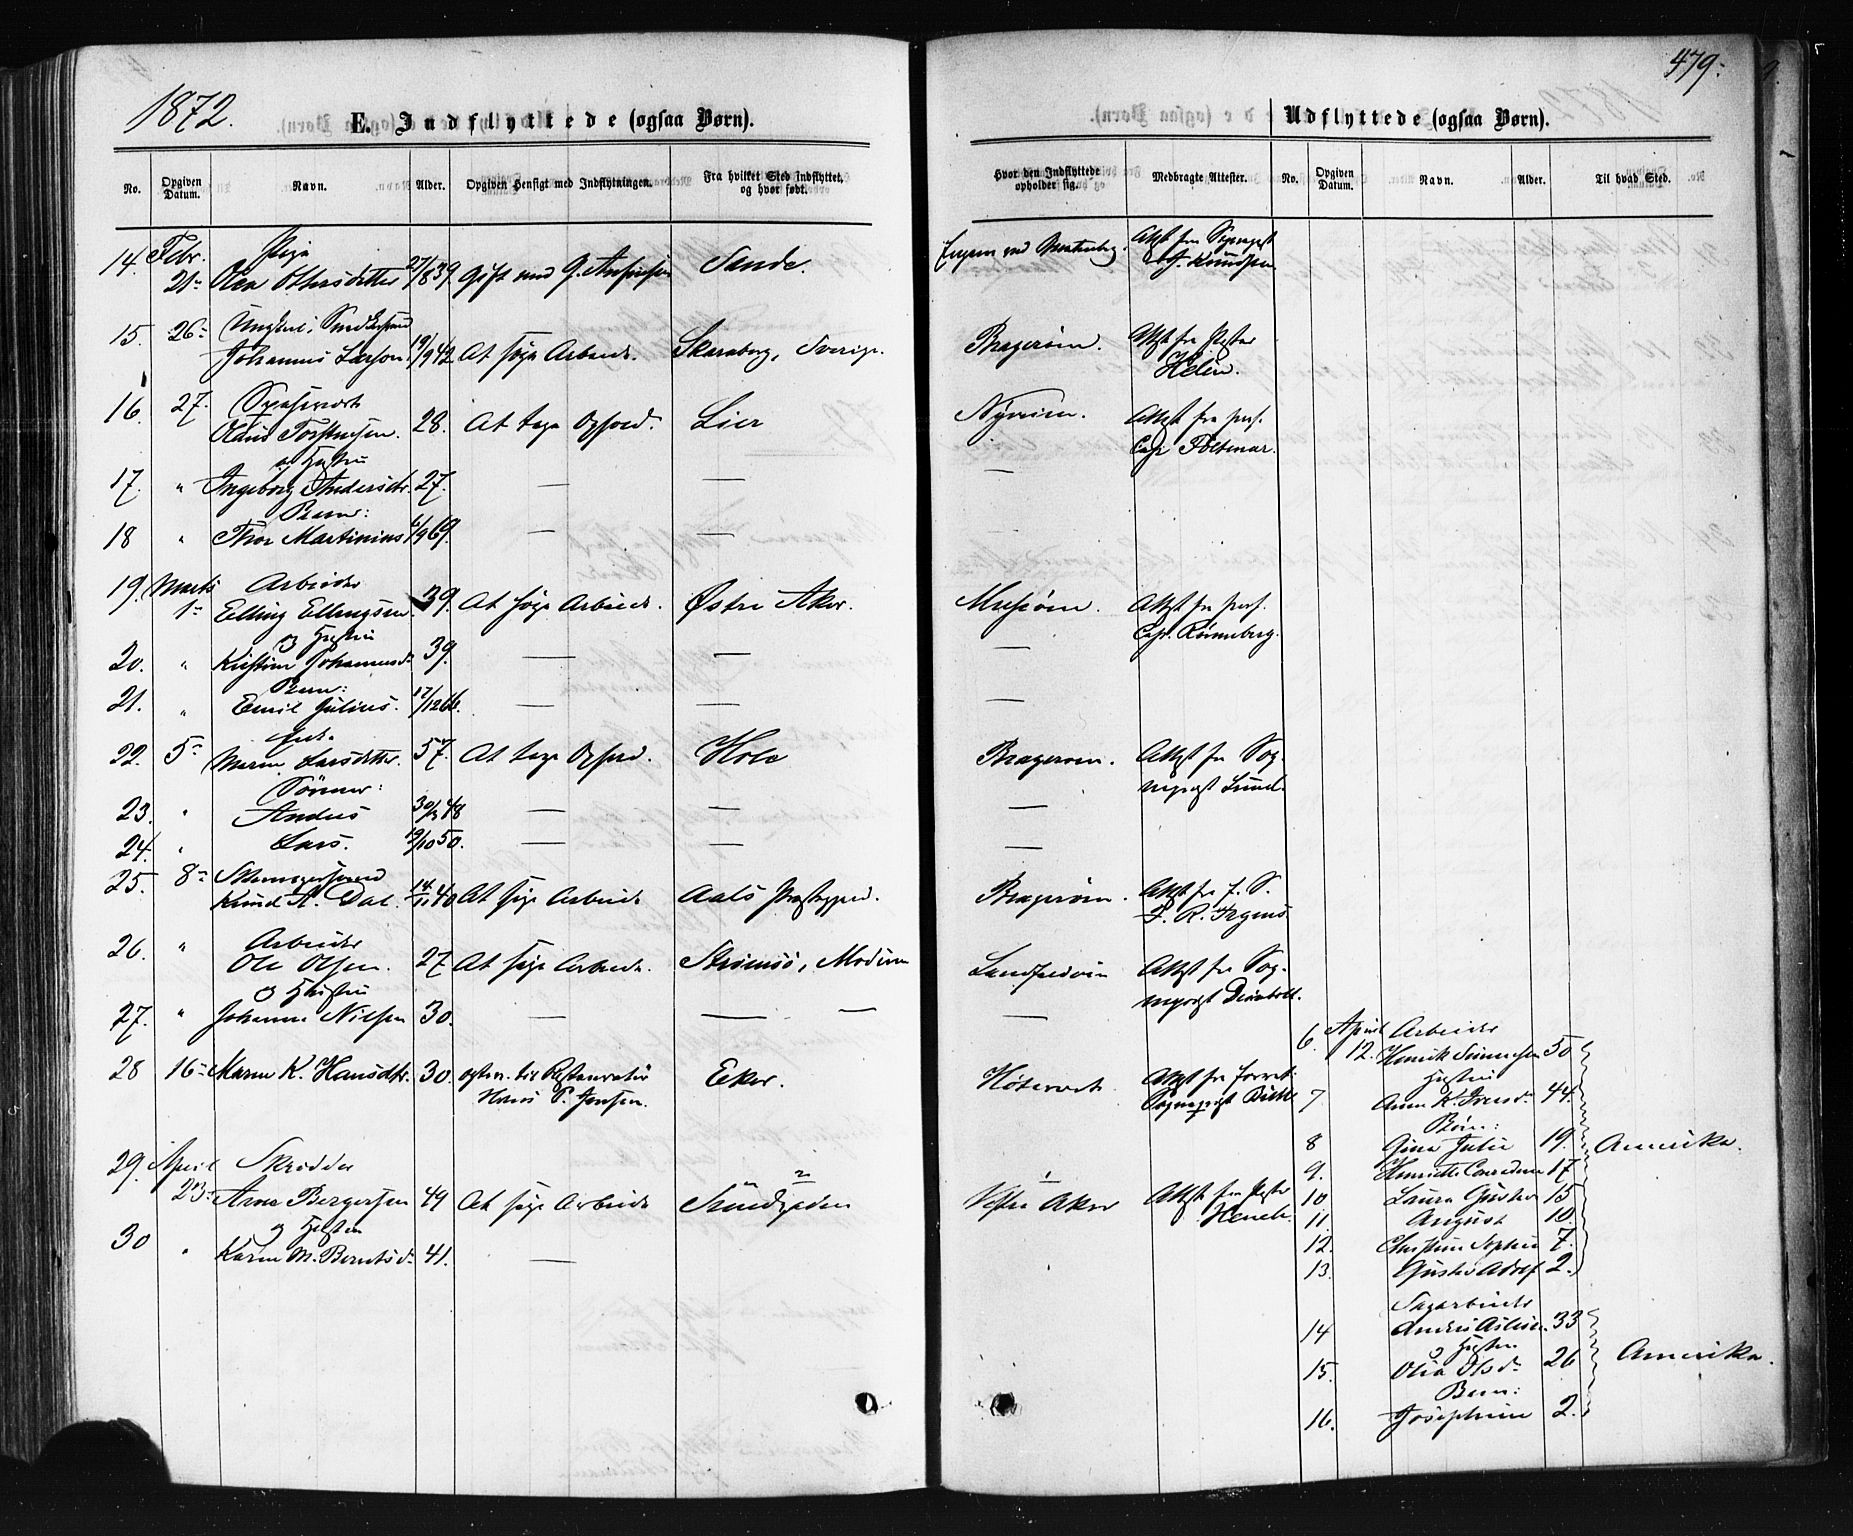 1872.
479.
E. Indflyttede (ogsaa Børn).
Udflyttede (ogsaa Børn).
No.
Opgiven Datum.
Navn.
Alder.
Opgiven Hensigt med Indflytningen.
Fra hvilket Sted Indflyttet, og hvor født.
Hvor den Indflyttede opholder sig.
Medbragte Attester.
No.
Opgiven Datum.
Navn.
Alder.
Til hvad Sted.
14. Febr. Pige
21 Olea 27/8 39. Gift med G. Sande.
Attest fra Sognepst
15. 26 Ungkarl
Johannes Larson 19/9 42 At søge Arbeide. Skaraborg, Sverige. Bragerøen. Attest fra Pastor
Helin.
16. 27.
28. At tage Ophold. Lier Attest fra pers.
Cap. Foltmar.
og Hustru
17. " Ingeborg Andersdtr. 27. — — —
Barn:
18 " Thor Martinius 6/9 69. — —
19. Marts Arbeider
1 Elling Ellingsen 39. At søge Arbeide. Østre Aker. Attest fra pers.
Cap. Rønneberg.
og Hustru
20. " Kristine Johannesd. 39. — — —
Barn:
21. " Emil Julius. 17/12 66. — — —
Enke
22. 5 Maren Larsdatter. 57. At tage Ophold. Hole Bragerøen. Attest fra Sog-
neprest Lund.
Sønner:
23. " Anders 30/3 48 — — —
24. " Lars. 19/10 50. — — —
25. 8
Knud A. Dal. 14/11 40 At søge Arbeide Aals Præstegjeld. Bragerøen. Attest fra f. S.
F. R. Irgens
26. " Arbeider
Ole Olsen. 27 At søge Arbeide. Strømsø, Modum Attest fra Sog-
neprest
og Hustru
27. " Johanne Nilsen 30. — — — —
28 16 Maren K. Hansdtr. 30. Restauratør Eker. Attest fra
Hans P. Jensen. Sogneprest
29. April Skrædder
23 Arne Bergersen 49 At søge Arbeide 2 1 Vestre Aker Attest fra Pastor
og Hustru
30 " Karen M. Berntsd. 41. —
6. April Arbeider
12. Henrik 50
Hustru
7. Anne K. Iversd. 44.
Børn:
8 Gina Julie 19. Amerika.
9. Henriette 17
10 Laura 15
11. August 10.
12. Christine Sophie 7.
13. Gustav Adolf 2.
Sagarbeider
14 Anders 33
og Hustru
Amerika.
15. Olia Olsd. 26
Barn:
16. Josephine 2.